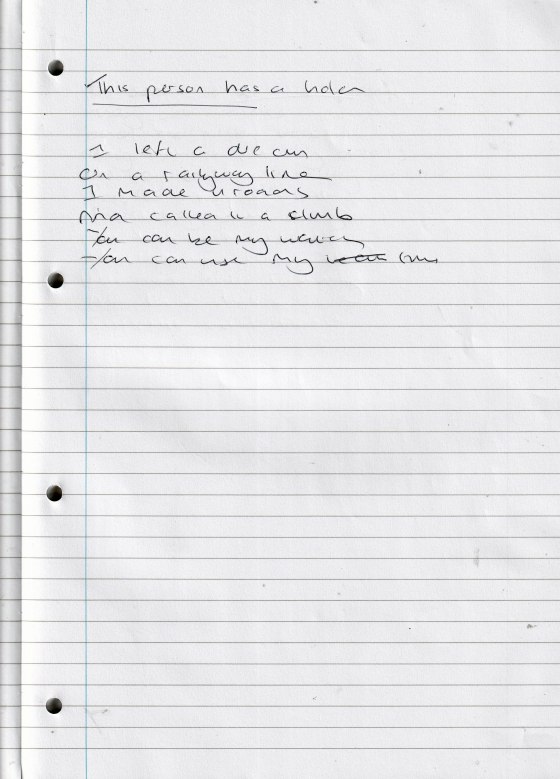 This person has a holder
I left a dream
on a railway line
I made inroads
And called it a climb
You can be my
You can use my